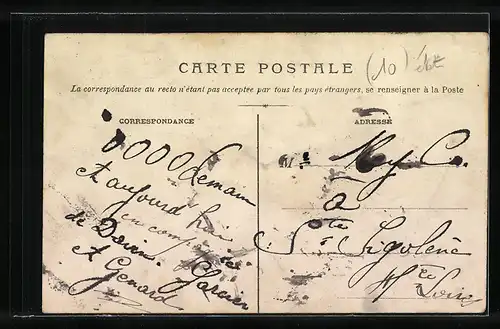 (10)
CARTE POSTALE
La correspondance au recto n'étant pas acceptée par tous les pays étrangers, se renseigner à la Poste
CORRESPONDANCE
ADRESSE
demain
A aujourd'hui
en
de
A Genard
My C.
à
Ste Sigolène
Hte Loire